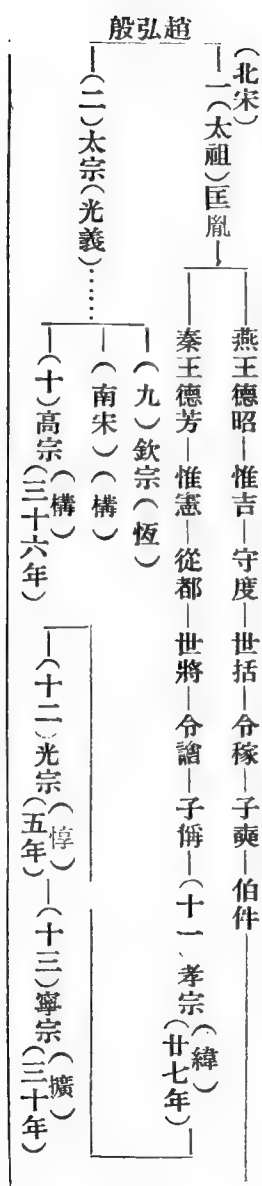 趙弘殷
(北宋)
一(太祖)匡胤
燕王德昭—惟吉—守度—世括—令稼—子奭—伯件
秦王德芳—惟憲—從都—世將—令譮—子偁—(十一、孝宗(緯)(廿七年)
(二)太宗(光義)……
(九)欽宗(恆)
(南宋)(構)
(十)高宗(構)(三十六年)
(十二)光宗(惇)(五年)—(十三)寧宗(擴)(三十年)